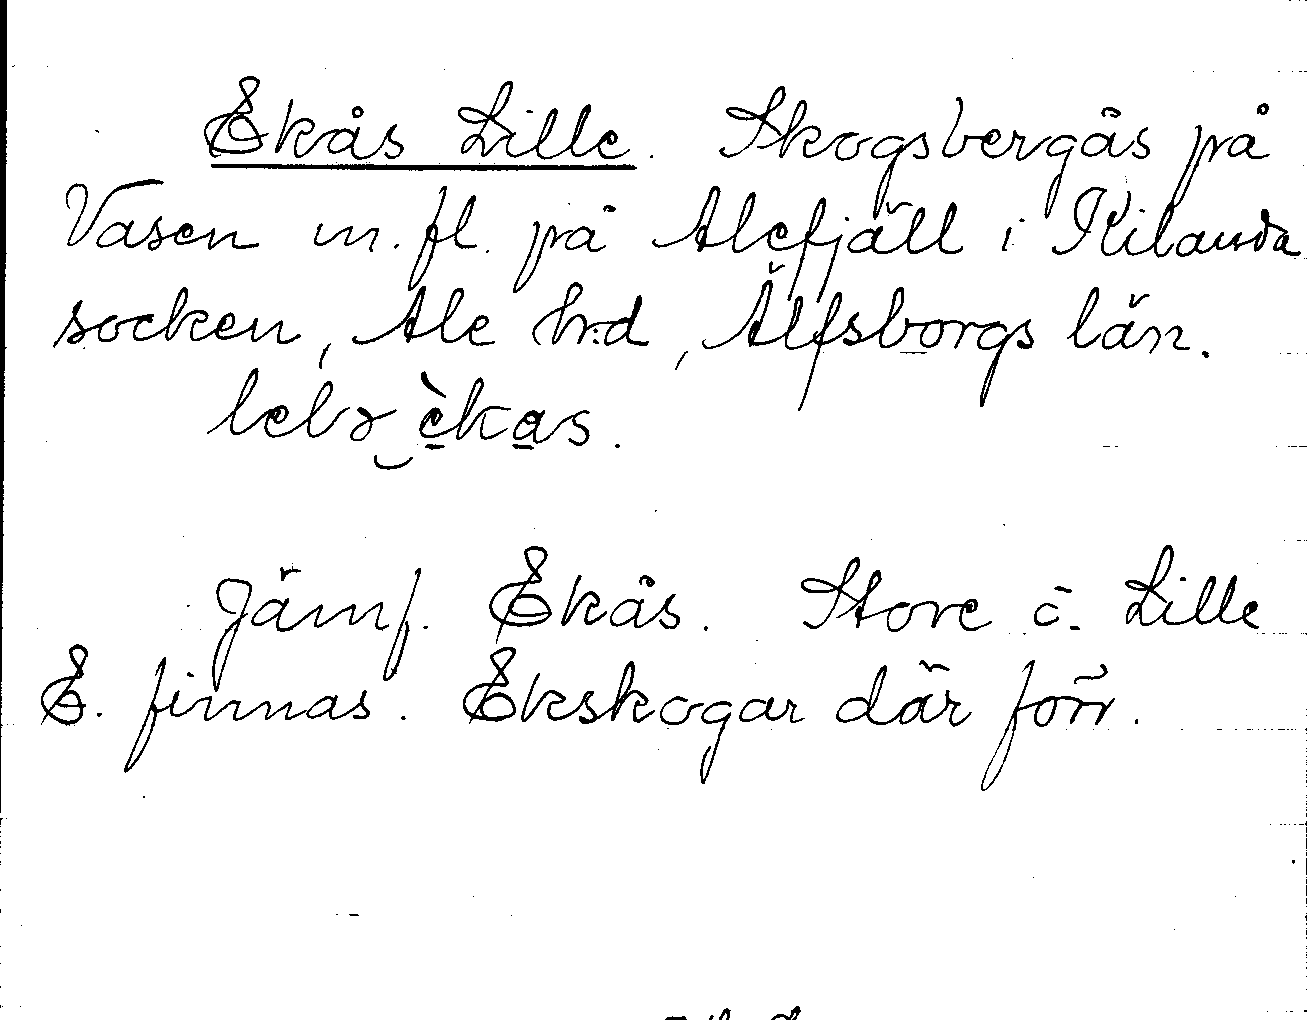 Ekås Lille. Skogsbergås på
Vasen m.fl. på Alefjäll i Kilanda
socken, Ale h:d, Älfsborgs län.
Jämf. Ekås. Store o. Lille
E. finnas. Ekskogar där förr.